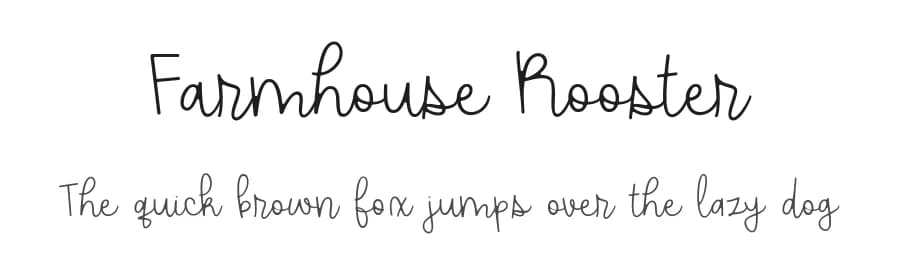 Farmhouse Rooster
The quick brown fox jumps over the lazy dog